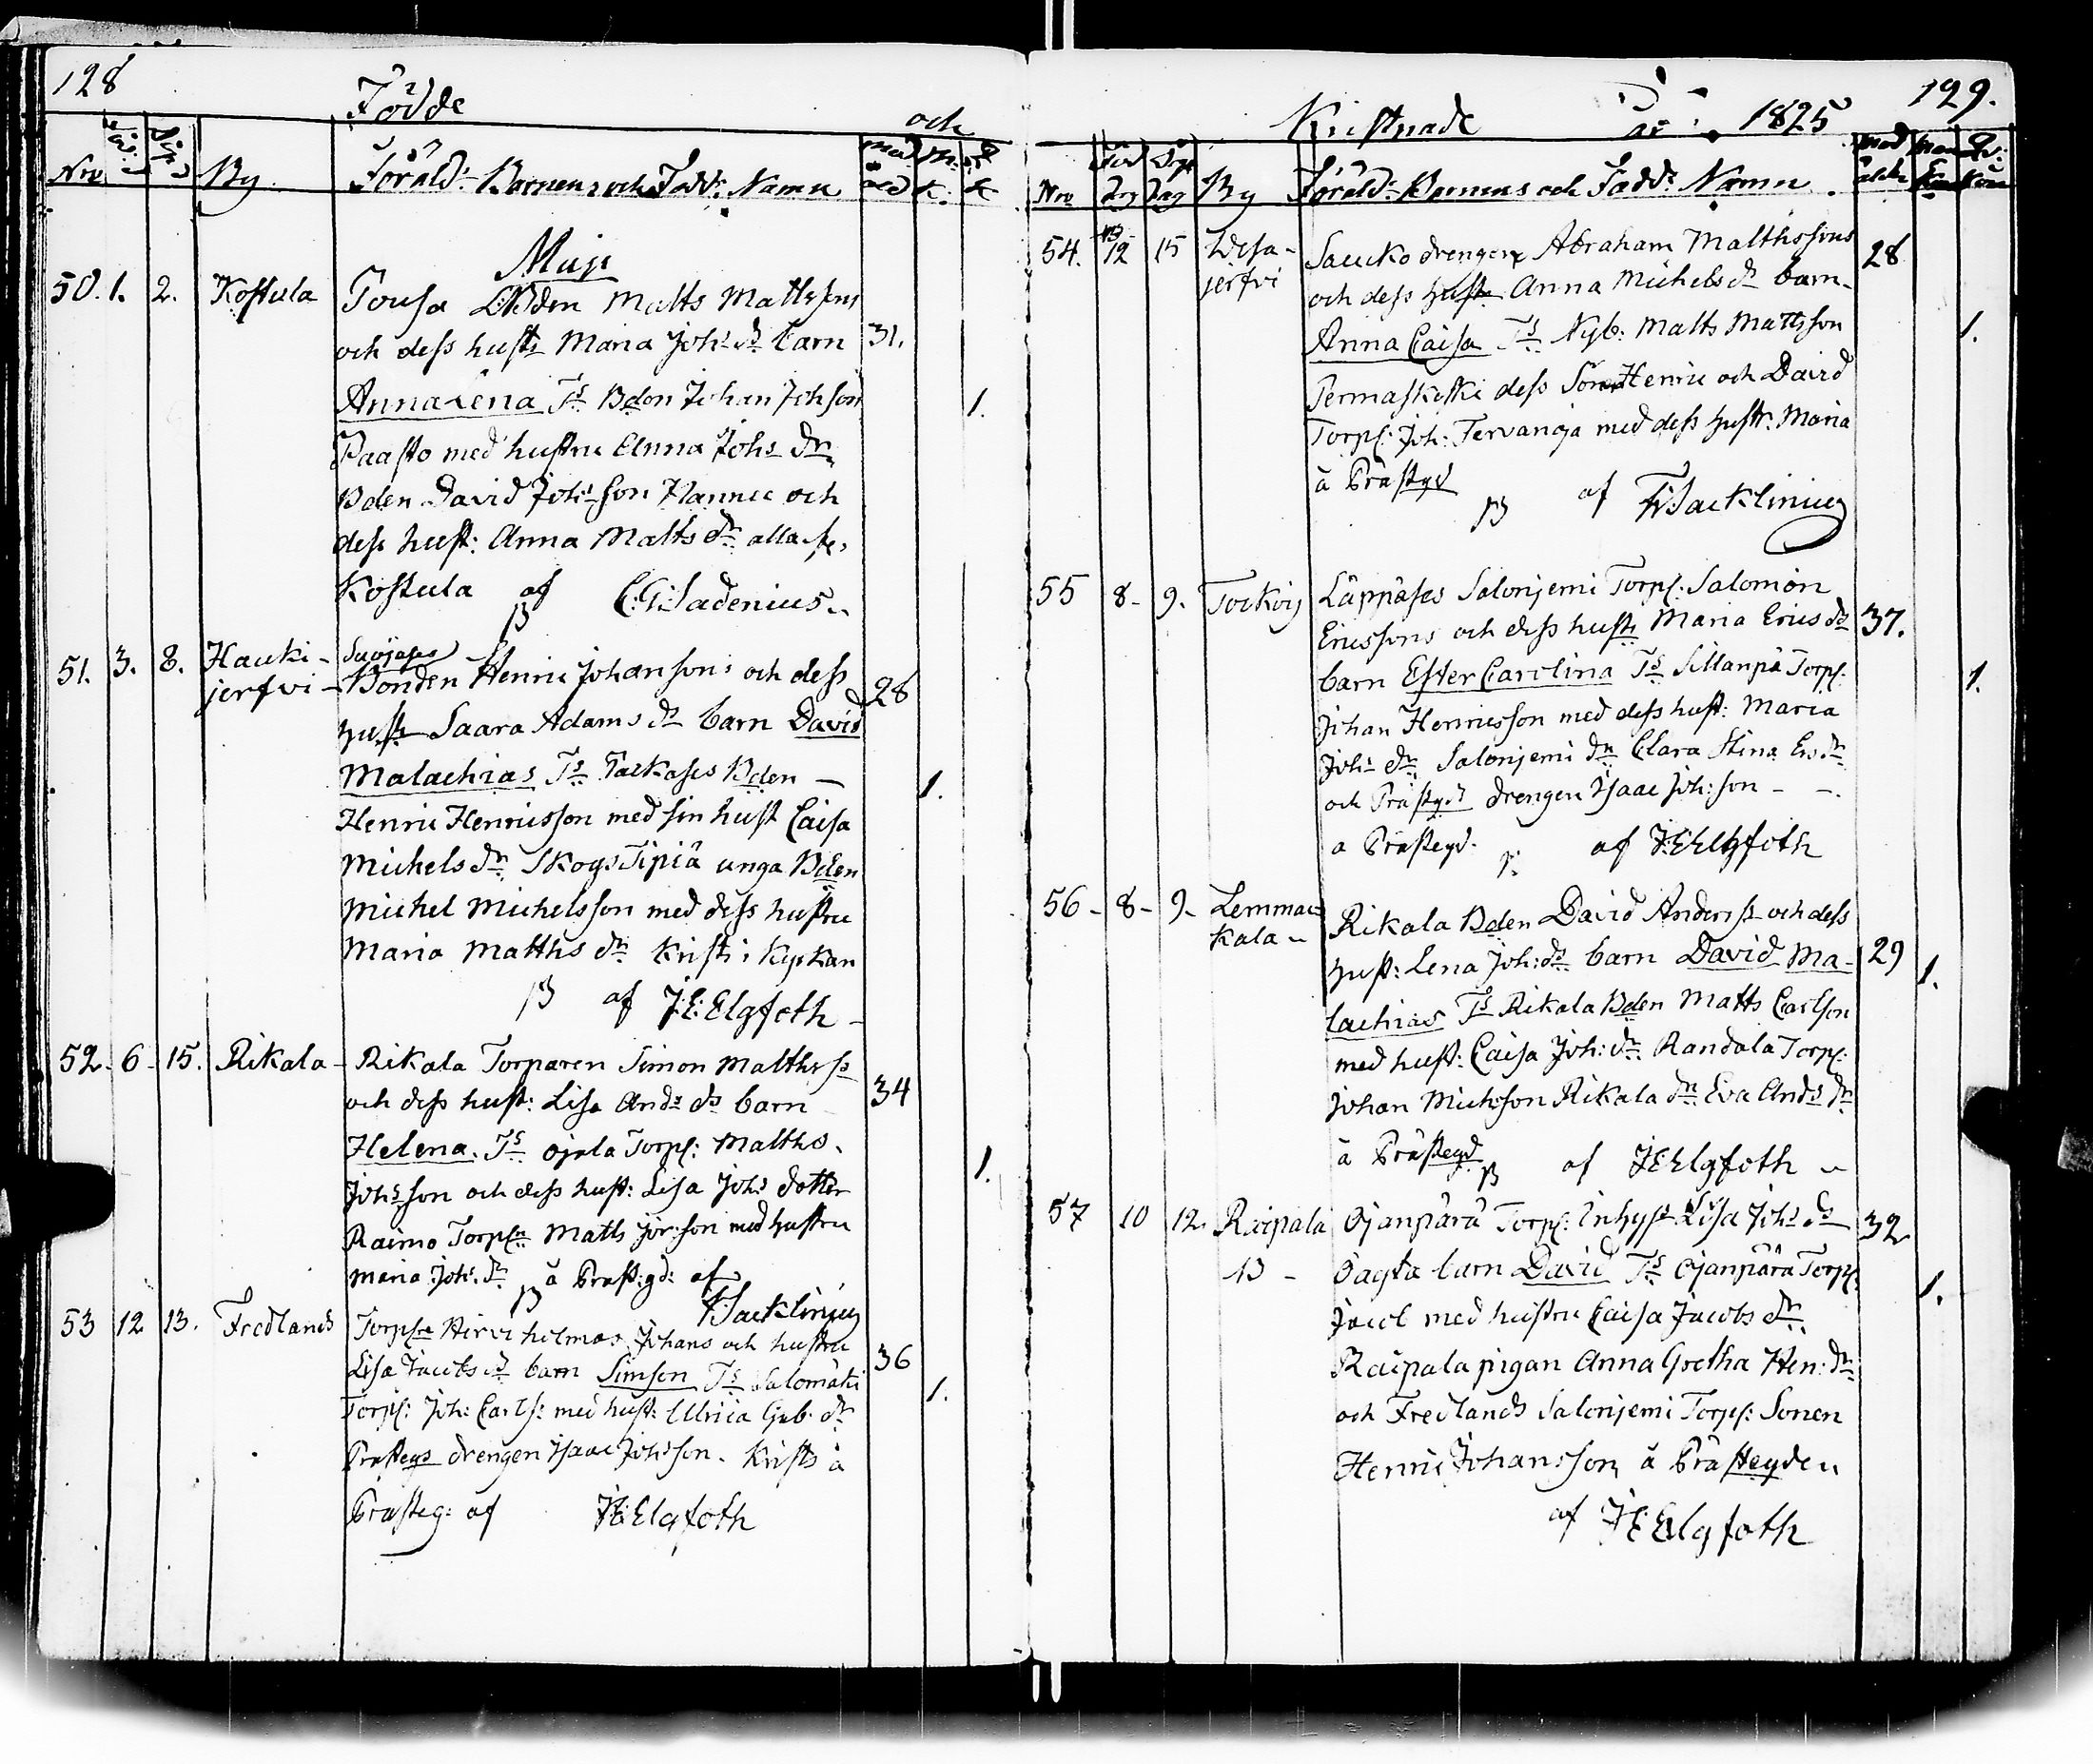 128
Födde
och
Nro By Föräld: Barnens och Fadd: Namn
Maji
50. 1. 2. Kostula Tousa Bden Matts Mattssons
och dess hustr Maria Johs dr barn 31.
Anna Lena Ts Bdon Johan Johson 1.
Paasto med hustru Anna Johs dr
Bden David Johsson Hannu och
dess hust: Anna Matts dr alla fr.
Kostula af C:G:Sadenius
51. 3. 8. Hauki- Suojases
jerfvi - Bonden Henric Johansons och dess 28
hustr Saara Adams dr barn David
Malachias Ts Tackases Bden - 1.
Henric Henricsson med sin hust Caisa
Michels dr Skogs Tipiä unga Bden
Michel Michelsson med dess hustru
Maria Matths dr Krist i Kyrkan
af J:E:Elgfoth
52. 6 15. Rikala - Rikala Torparen Simon Matths
och dess hust: Lisa Ands dr barn 34
Helena. Ts Ojala Torps: Matths. 1.
Johsson och dess hust: Lisa Johs dotter
Raimo Torpn Matts Jörson med hustru
Maria Johs dr å Prast:gd: af
F:Sacklinius
53 12 13. Fredlands Torpn Hirvi holmas Johans och hustru
Lisa Jacobs dr barn Simson Ts Salomäki 36
Torps: Joh: Carls: med hust: Ulrica Gab. dr 1.
Prastegs drengen Isaac Johsson. Krists å
Prasteg: af J:E:Elgfoth
129.
Kristnade år 1825
Nro Föd Dag Döp Dag By Föräld: Barnens och Fadd: Namn. Mod ålder Man kön Qv: kön
54. 12 15 Wesa- Saucko drengen Abraham Malthssons 28
jerfvi och dess hustr Anna Michels dr barn
Anna Caisa Ts Nyb: Matts Mattsson 1.
Permaskoski dess Son Henric och David
Torps: Joh: Tervanoja med dess hustr: Maria
å Prästgd af F:Sacklinius
55 8- 9. Torkois Läppäses Salonjemi Torps: Salomon
Ericssons och dess hustr Maria Erics dr 37.
barn Ester Carolina Ts Sillanpä Torps: 1.
Johan Henricsson med dess hust: Maria
Johs dr Salonjemi dn Clara Stina Ers dr
och Prästgds drengen Isaac Joh:son - -.
a Prästegd. af J:E:Elgfoth
56 - 8 - 9 - Lemma- Rikala Bden David Anders och dess
kala hust: Lena Joh: dr barn David Ma- 29 1.
lachias Ts Rikala Bden Matts Carlson
med hust: Caisa Joh: dr Randala Torps:
Johan Michsson Rikala dn Eva Ands dr
å Prästegd af J:E:Elgfoth
57 10 12. Raipala Ojanpärä Torps: Inhyss Lisa Johs dr 32
Oägta barn David Ts Ojanpärä Torps. 1.
Jacob med hustru Caisa Jacobs dr.
Raipala pigan Anna Gretha Hen: dr
och Fredlands Salonjemi Torps: Sonen
Henric Johansson, å Prästegden
af J:E:Elgfoth